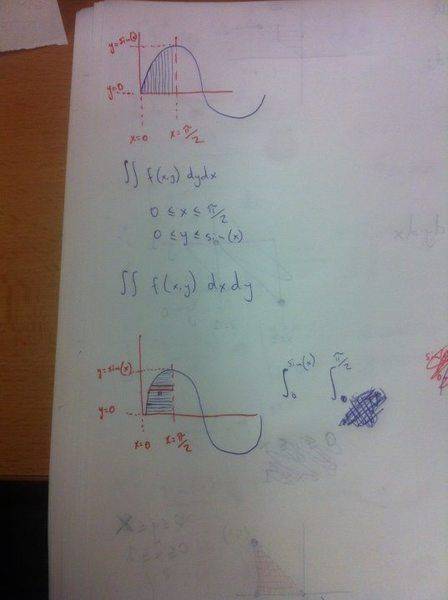 y=sin(x)
y=0
x=0
x=π/2
∬ f(x,y) dydx
0 ≤ x ≤ π/2
0 ≤ y ≤ sin(x)
∬ f(x,y) dxdy
y=sin(x)
y=0
x=0
x=π/2
∫₀^sin(x) ∫₀^π/2